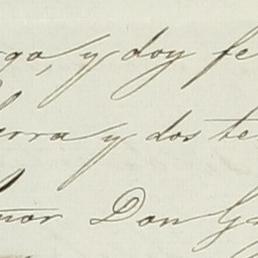 rgo, y doy fe
erra y dos te
ñor Don G